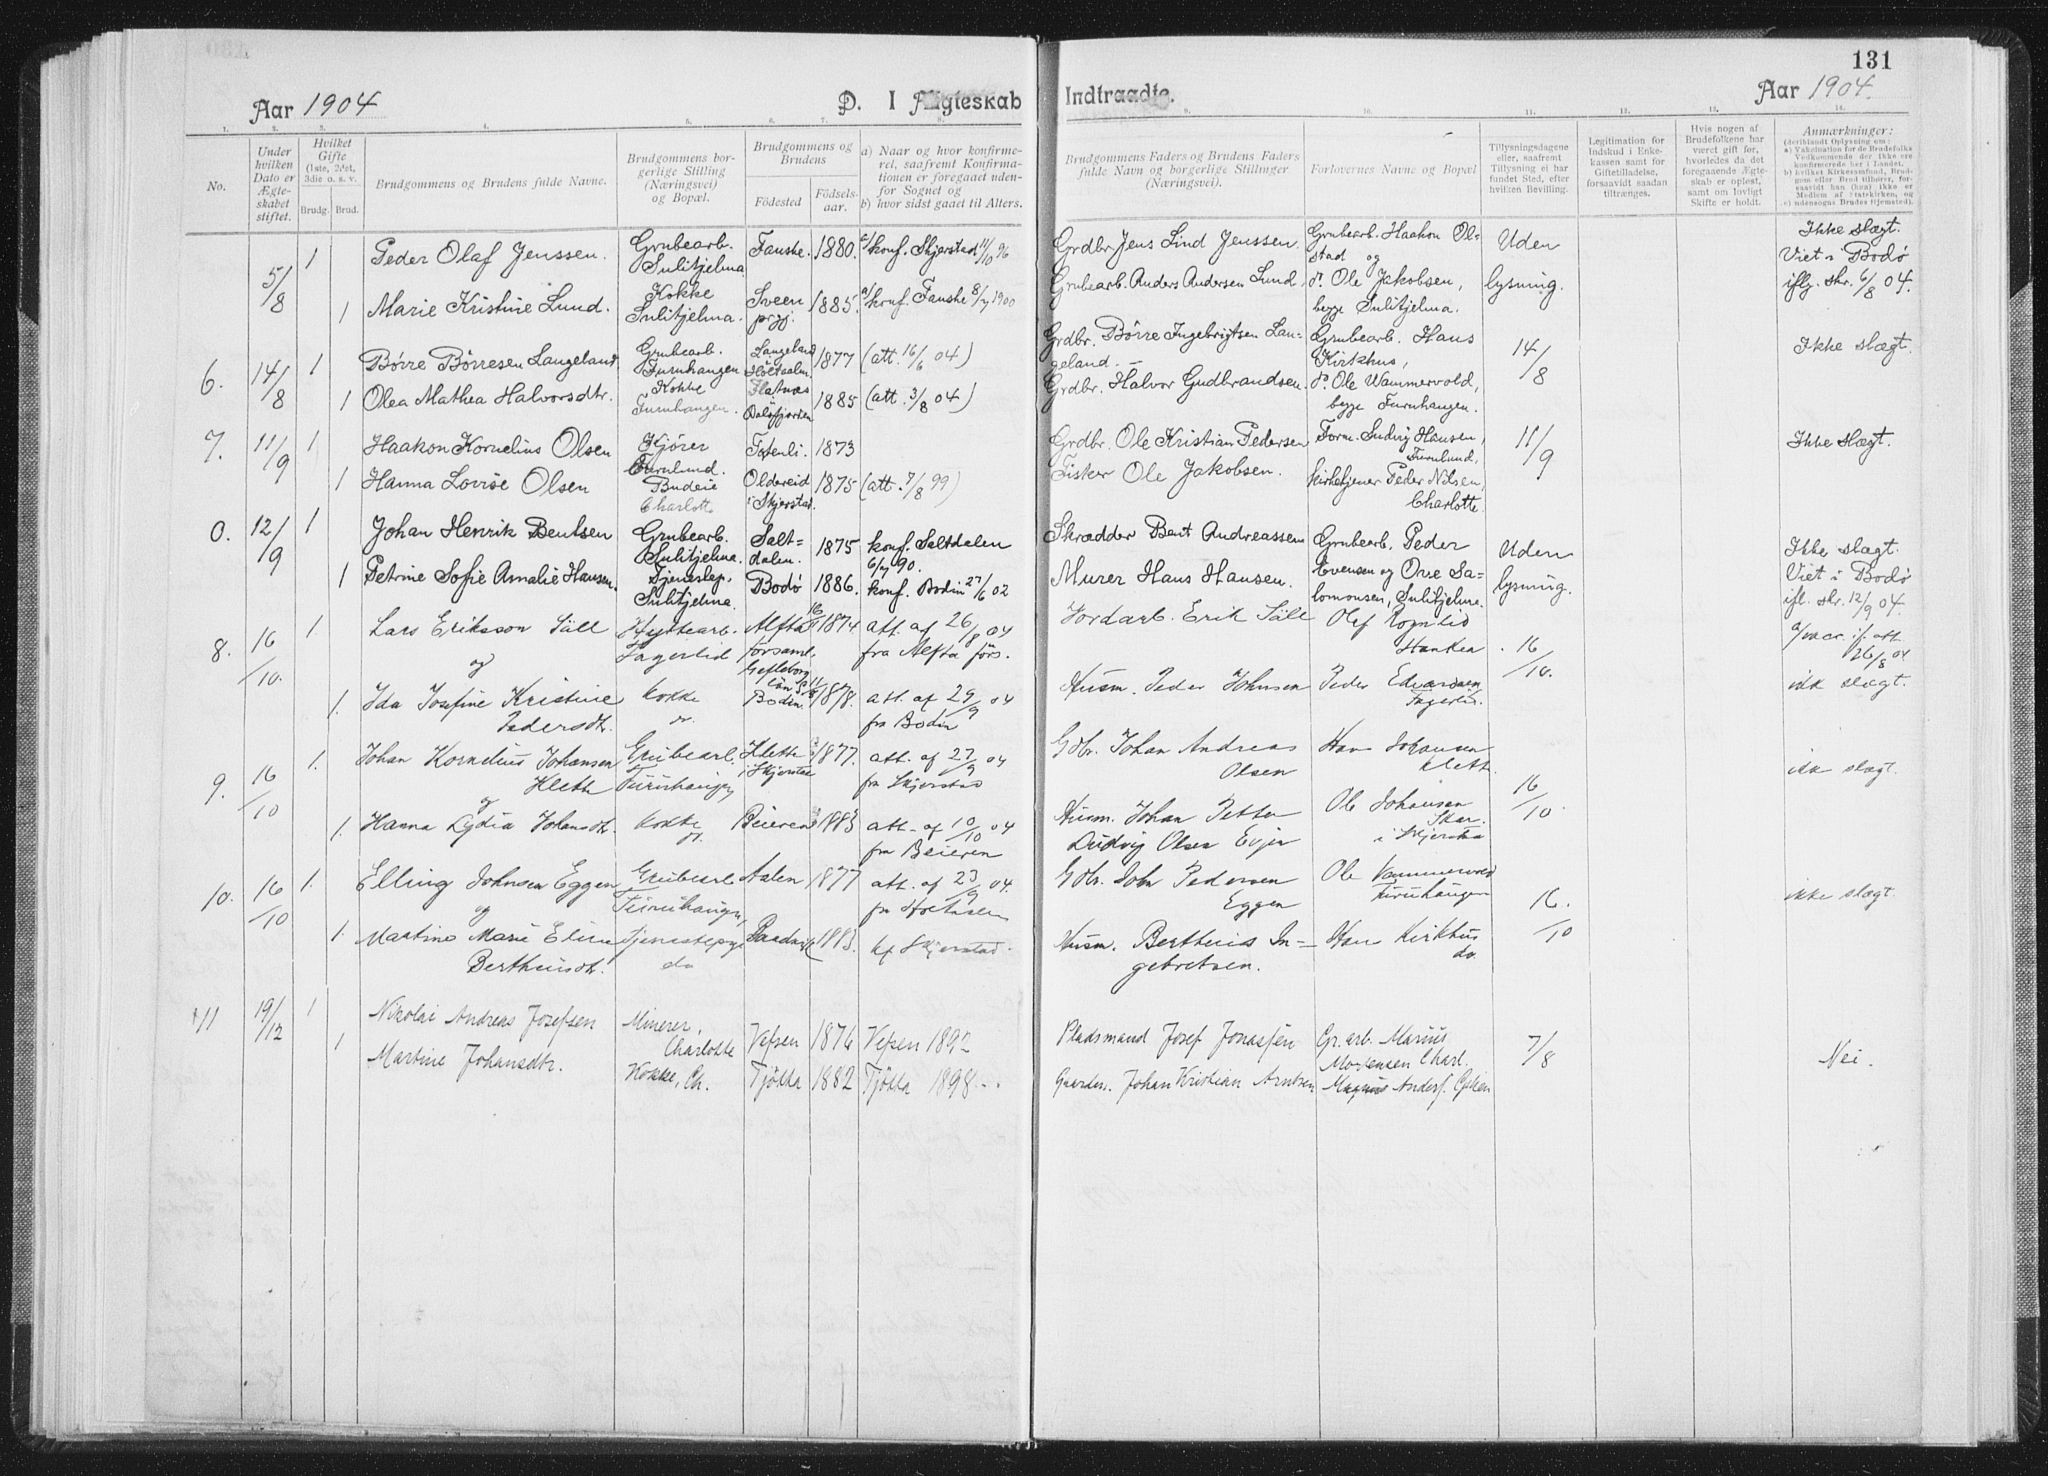 131
Aar 1904 D. I Ægteskab Indtraadte. Aar 1904.
1. 2. 3. 4. 5. 6. 7. 8. 9. 10. 11. 12. 13. 14.
No.
Under hvilken Dato er Ægteskabet stiftet.
Hvilket Gifte (1ste, 2det, 3die o. s. v.
Brudg. Brud.
Brudgommens og Brudens fulde Navne.
Brudgommens borgerlige Stilling (Næringsvei) og Bopæl.
Brudgommens og Brudens
Fødested Fødselsaar.
a) Naar og hvor konfirmeret, saafremt Konfirmationen er foregaaet udenfor Sognet og
b) hvor sidst gaaet til Alters.
Brudgommens Faders og Brudens Faders fulde Navn og borgerlige Stillinger (Næringsvei).
Forlovernes Navne og Bopæl
Tillysningsdagene eller, saafremt Tillysning ei har fundet Sted, efter hvilken Bevilling.
Legitimation for Indskud i Enkekassen samt for Giftetilladelse, forsaavidt saadan tiltrænges.
Hvis nogen af Brudefolkene har været gift før, hvorledes da det foregaaende Ægteskab er opløst, samt om lovligt Skifte er holdt.
Anmærkninger: (deriblandt Oplysning om:
a) Vaksination for de Brudefolks Vedkommende der ikke ere konfirmerede her i Landet,
b) hvilket Kirkesamfund, Brudgom eller Brud tilhører, forsaavidt han (hun) ikke er Medlem af Statskirken, og
c) udensogns Brudes Hjemsted).
5/8 1 Peder Olaf Jenssen. Grubearb. Sulitjelma Fauske. 1880. a) konf. Skjerstad 11/10 96 Grdbr. Jens Lind Jenssen. Grubearb. Haakon Olstad og Uden lysning. Ikke slægt. Viet i Bodø iflg. skr. 6/8 04.
1 Marie Kristine Lund. Kokke Sulitjelma. Sveen prgj. 1885. a) konf. Fauske 8/7 1900 Grubearb. Anders Andersen Lund, do. Ole Jakobsen, begge Sulitjelma.
6. 14/8 1 Børre Børresen Langeland Grubearb. Furuhaugen Langeland 1877 (att. 16/6 04) Grdbr. Børre Ingebrigtsen Langeland. — Grubearb. Hans Kirkhus, 14/8 Ikke slægt.
1 Olea Mathea Halvorsdtr. Kokke Furuhaugen. 1885 (att. 3/8 04) Grdbr. Halvor Gudbrandsen. do. Ole Wammervold, begge Furuhaugen.
7. 11/9 1 Haakon Kornelius Olsen Kjører Furulund. 1873 Grdbr. Ole Kristian Pedersen Form. Ludvig Hansen, Furulund, 11/9 Ikke slægt.
1 Hanna Lovise Olsen Budeie Charlotte Oldereid i Skjerstad. 1875 (att. 7/8 99) Fisker Ole Jakobsen. Kirketjener Peder Nilsen, Charlotte.
0. 12/9 1 Johan Henrik Bentsen Grubearb. Sulitjelma. Saltdalen. 1875 konf. Saltdalen 6/7 90. Skrædder Bent Andreassen Grubearb. Peder Evensen og Ove Salomonsen, Sulitjelma. Uden lysning. Ikke slægt. Viet i Bodø ifl. skr. 12/9 04.
1 Petrine Sofie Amalie Hansen. Tjenestep. Sulitjelma. Bodø 1886. konf. Bodin 27/6 02 Murer Hans Hansen.
8. 16/10. 1. Lars Eriksson Säll Hyttearb. Fagerlid Alfta församl. Gefleborg län 1874 att. af 26/8 04 fra Alfta förs. Jordarb. Erik Säll Olof Hanken 16/10. att. 26/8 04
og
1. Ida Josefine Kristine Pedersdtr. Kokke do. Bodin 1878. att. af 29/9 04 fra Bodin Husm. Peder Johnsen Peder Edvardsen Fagerlid. ikk slægt.
9. 16/10 1. Johan Kornelius Johansen Klette Grubearb. Furuhaugen Klette i Skjerstad 1877. att. af 27/9 04 fra Skjerstad Gdbr. Johan Andreas Olsen Hans Johansen Klett. 16/10 ikk slægt.
og
1. Hanna Lydia Johansdtr. Kokke do. Beieren 1883 att. af 10/10 04 fra Beieren Husm. Johan Petter Ludvig Olsen Evjen Ole Johansen Skar. i Skjerstad
10. 16/10 1. Elling Johnsen Eggen Grubearb. Furuhaugen, Aalen 1877 att. af 23/9 04. fra Gdbr. John Pedersen Eggen Ole Vammervold Furuhaugen 16./10 ikke slægt.
og
1. Martine Marie Eline Berthinsdtr. Tjenestepige do 1883. kf Skjerstad. Husm. Berthinus Ingebretsen. Hans Kirkhus do.
11 19/12 1 Nikolai Andreas Josefsen Minerer, Charlotte Vefsen 1876 Vefsen 1892 Pladsmand Josef Jonassen Gr. arb. Marius Mortensen Charl. 7/8 Nei.
1 Martine Johansdtr. Kokke, Ch. Tjøtta 1882 Tjøtta 1898 Gaardm. Johan Kristian Arntsen Magnus Anders.